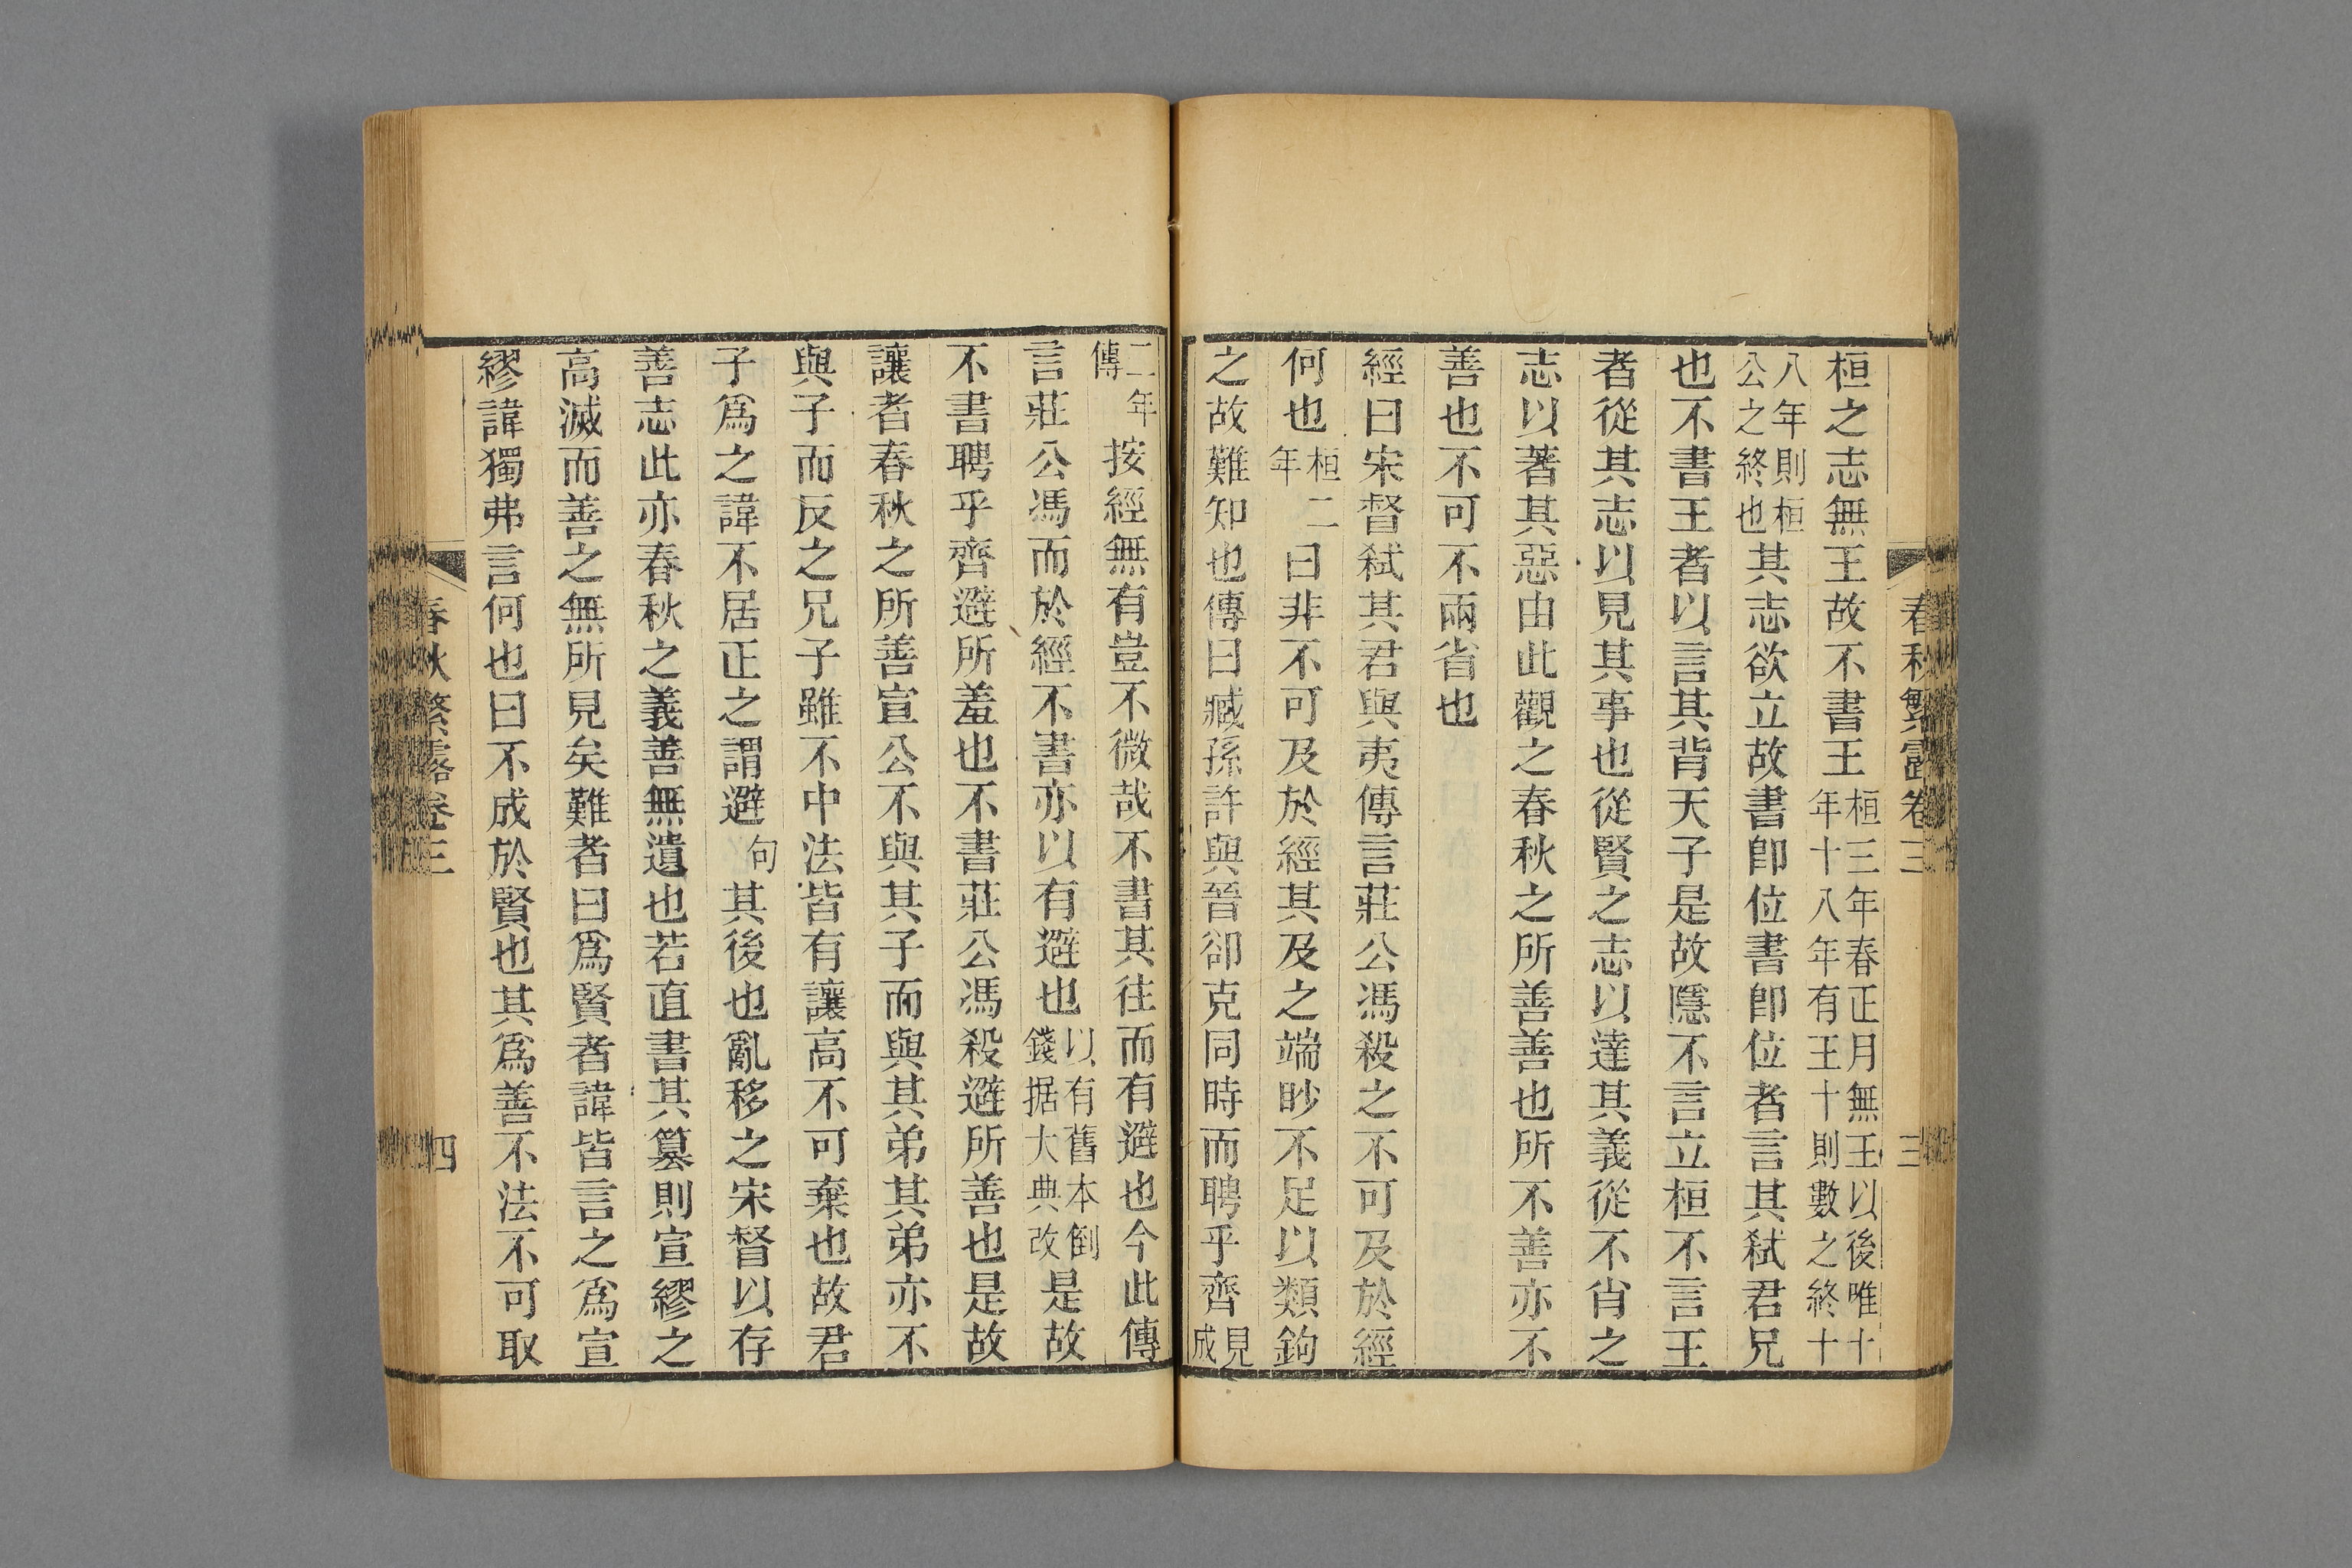 春秋繁露卷三
三
桓之志無王故不書王桓三年春正月無王以後唯十年十八年有王十則數之終十
八年則桓公之終也其志欲立故書卽位書卽位者言其弑君兄
也不書王者以言其背天子是故隱不言立桓不言王
者從其志以見其事也從賢之志以達其義從不肖之
志以著其惡由此觀之春秋之所善善也所不善亦不
善也不可不兩省也
經曰宋督弑其君與夷傳言莊公馮殺之不可及於經
何也桓二年曰非不可及於經其及之端眇不足以類鉤
之故難知也傳曰臧孫許與晉卻克同時而聘乎齊見成
二年傳按經無有豈不微哉不書其往而有避也今此傳
言莊公馮而於經不書亦以有避也以有舊本倒錢据大典改是故
不書聘乎齊避所羞也不書莊公馮殺避所善也是故
讓者春秋之所善宣公不與其子而與其弟其弟亦不
與子而反之兄子雖不中法皆有讓高不可棄也故君
子爲之諱不居正之謂避句其後也亂移之宋督以存
善志此亦春秋之義善無遺也若直書其簒則宣繆之
高滅而善之無所見矣難者曰爲賢者諱皆言之爲宣
繆諱獨弗言何也曰不成於賢也其爲善不法不可取
春秋繁露卷三
四